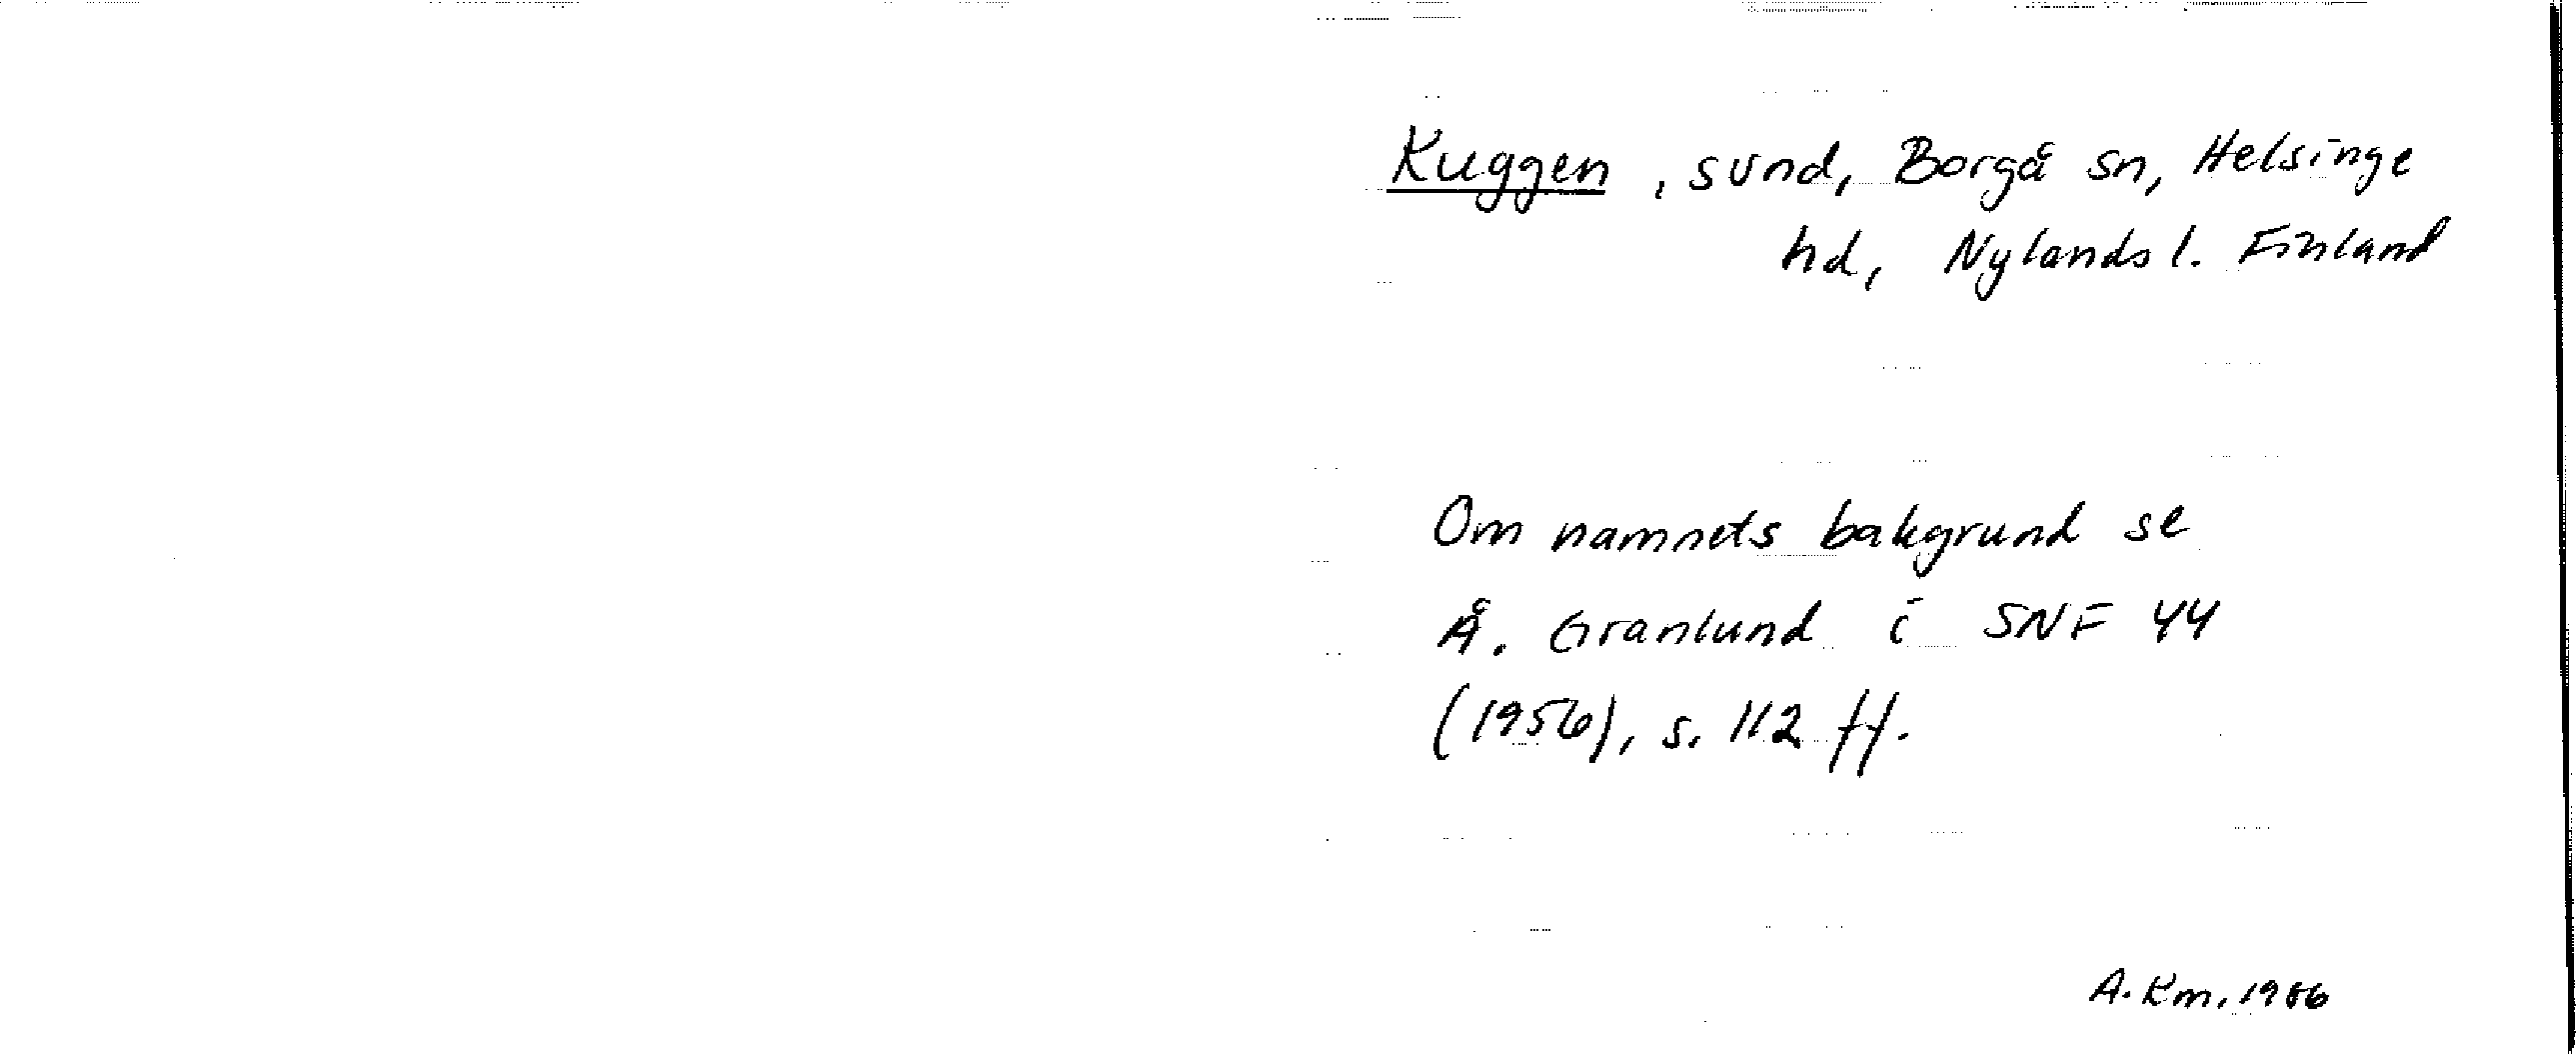 Kuggen, sund, Borgå sn, Helsinge
hd, Nylands l. Finland
Om namnets bakgrund se
Å. Granlund i SNF 44
(1956), s. 112 ff.
A. Km. 1986